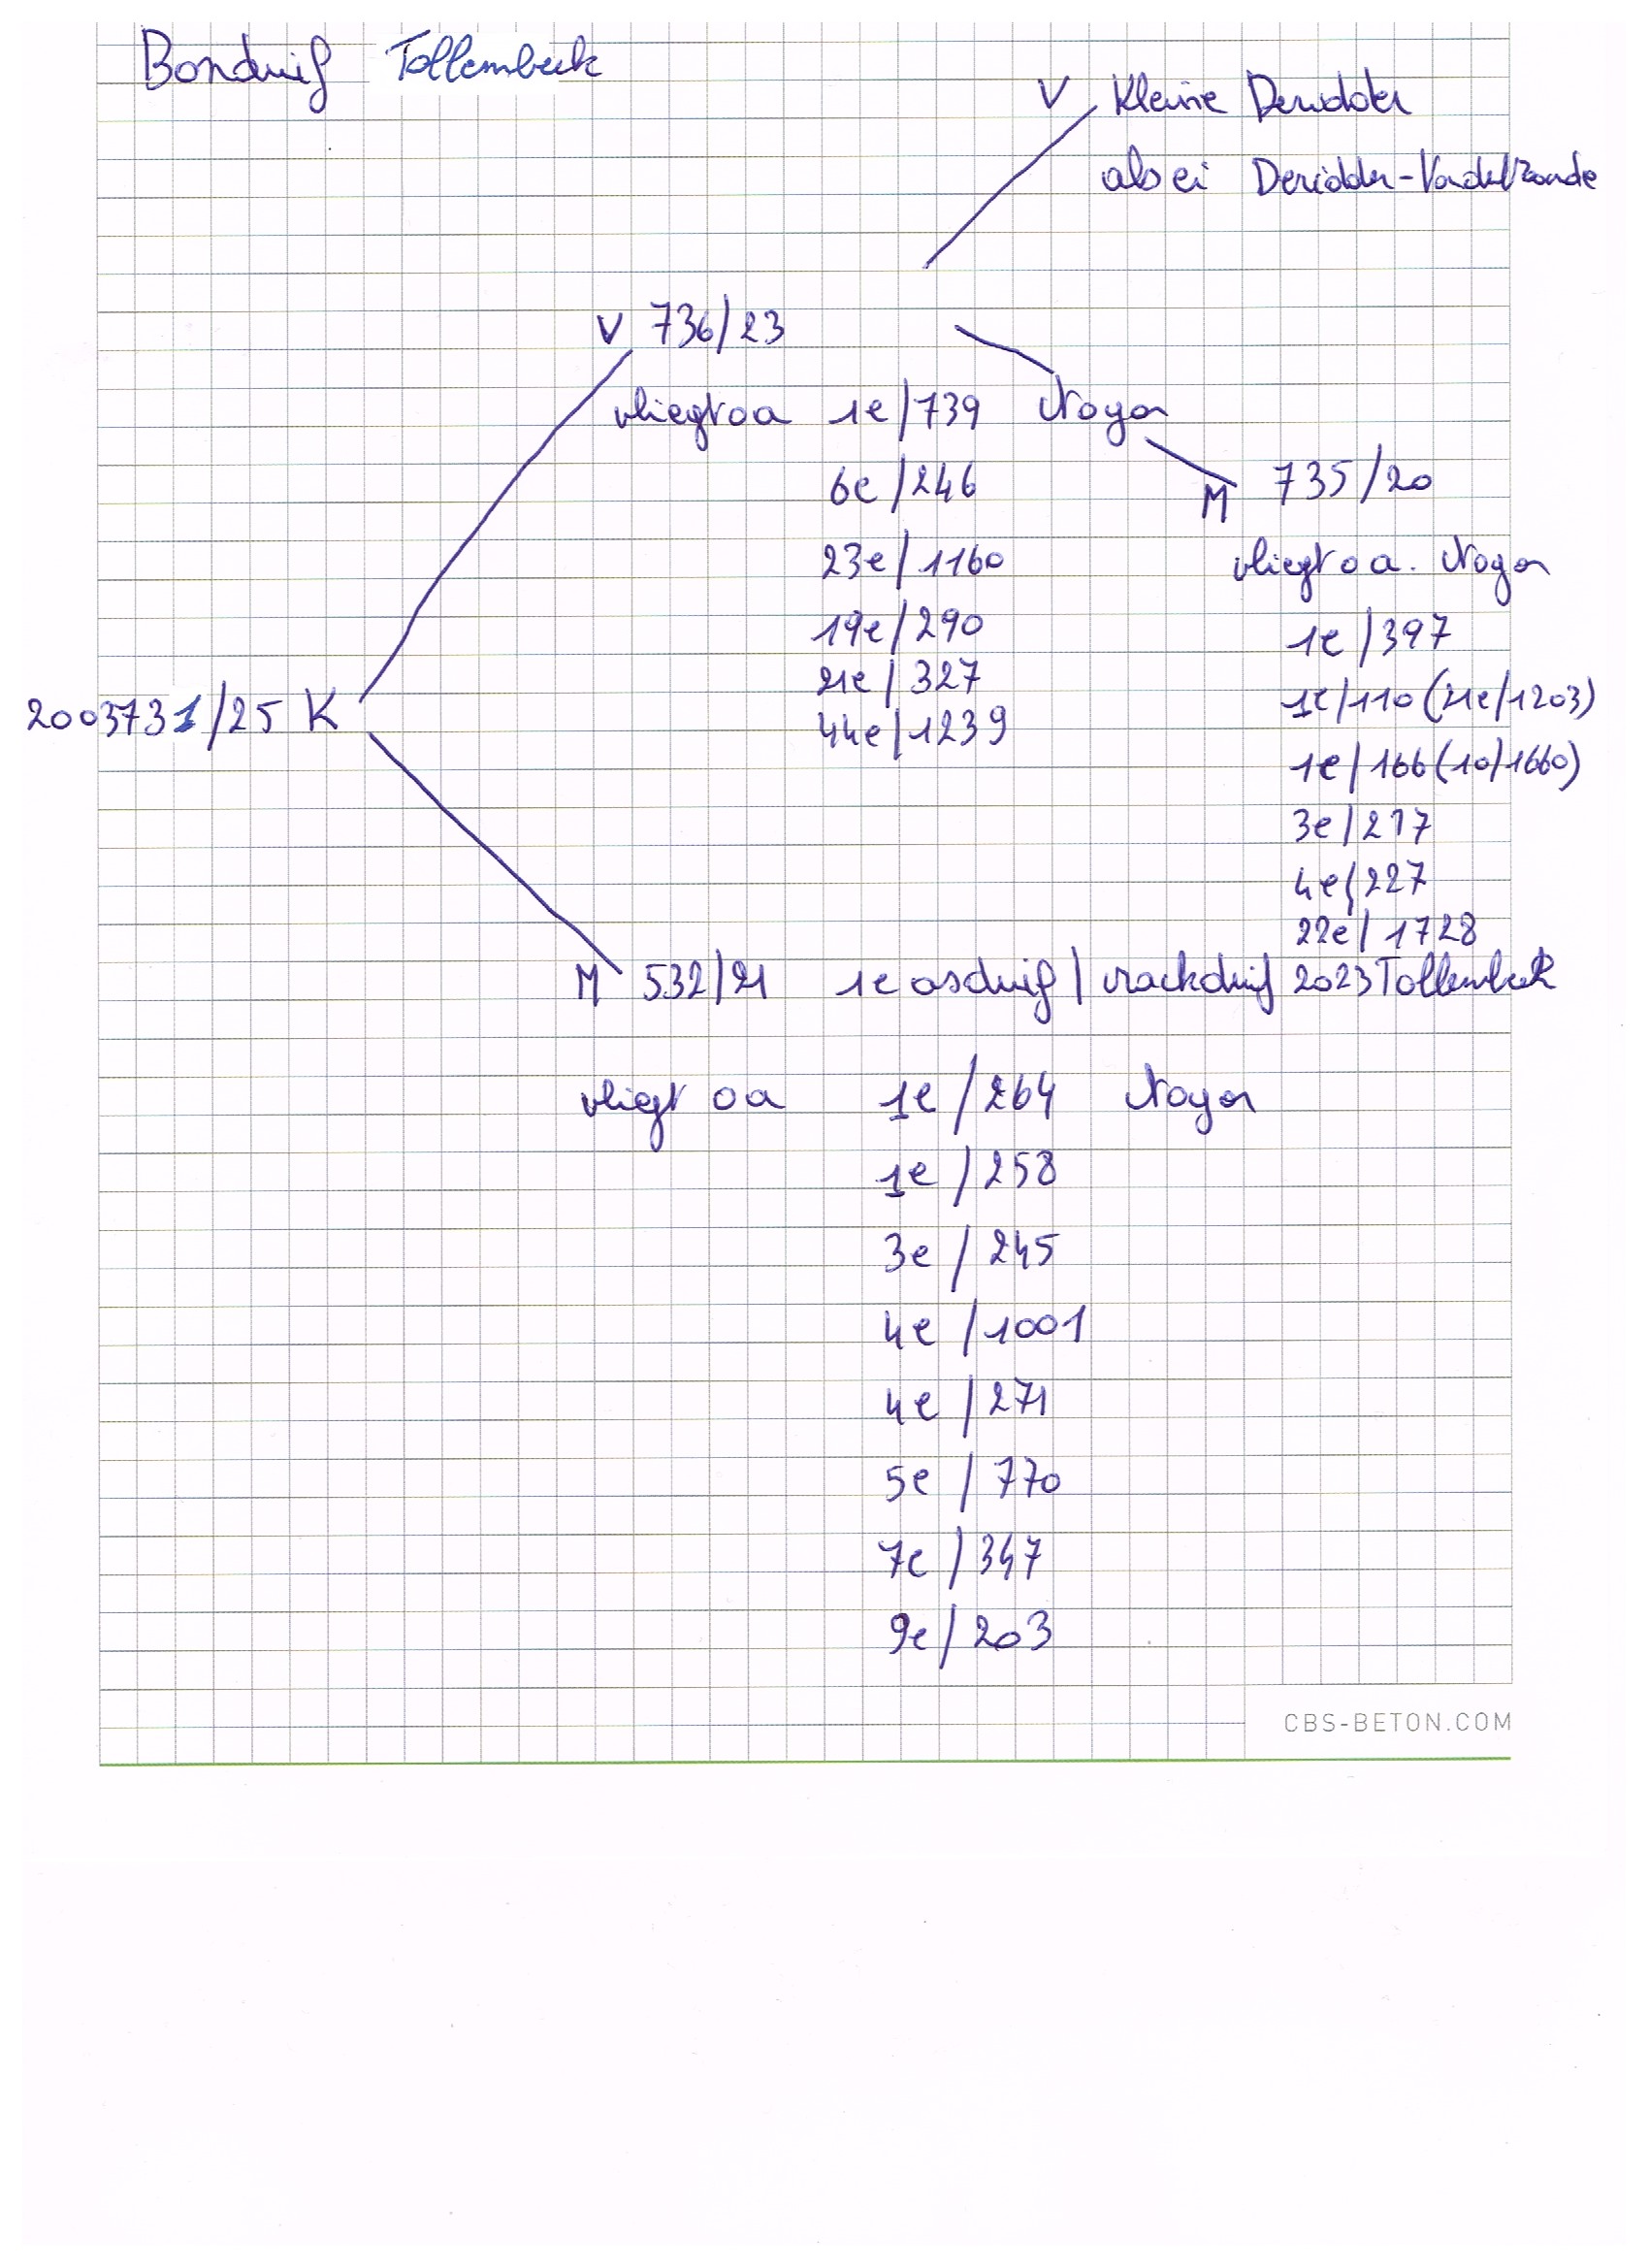 Bonduif Tollembeek
V Kleine Deridder
als ei Deridder-Vandelzande
V 736/23
vliegt oa 1e/739 Noyon
6e/246
23e/1160
19e/290
21e/327
44e/1239
M 735/20
vliegt oa. Noyon
1e/397
1e/110 (21e/1203)
1e/166 (10/1660)
3e/217
4e/227
22e/1728
2003731/25 K
M 532/21 1e asduif/vrackduif 2023 Tollembeek
vliegt oa 1e/264 Noyon
1e/258
3e/245
4e/1001
4e/271
5e/770
7e/347
9e/203
CBS-BETON.COM